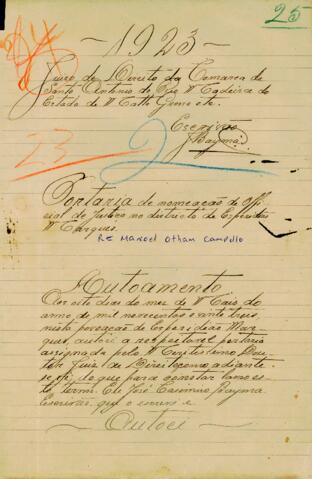 25
1923
Juizo de Direito da Comarca de
Santo Antonio do Rio Madeira do
Estado de Matto Grosso etc.
Escrivão
Bayma
23 2
Portaria de nomeação de Offi-
cial de Justiça no districto de Esperidião
Marques
RE Manoel Otham Campello
Autoamento
dias do mez de Maio do
anno de mil novecentos e vinte tres,
nesta povoação de Esperidião Mar-
ques, autuei a respeitavel portaria
assignada pelo Meritissimo Dou-
tor Juiz de Direito como adiante
se vê; do que para constar lavro es-
te termo. Eu José Casimiro Bayma
Escrivão que o escrevi e
Autoei